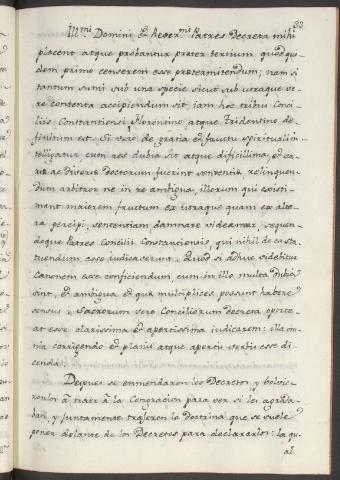 83
Ill.mi Domini & Rever.mi Patres Decreta mihi
placent atque probantur præter tertium quod qui-
dem primo censerem esse prætermittendum; nam si
tantum sumi sub una specie sicut sub utraque ve-
re contenta accipiendum sit, jam hoc tribus Conci-
liis Constantiensi Florentino atque Tridentino de-
finitum est. Si vero de gratia et fructu spirituali in-
telligatur, cum res dubia sit atque difficilima, & va-
riæ ac diversæ Doctorum fuerint sententiæ, relinquen-
dum arbitror ne in re ambigua, illorum qui existi-
mant maiorem fructum ex utraque quam ex alte-
ra percipi, sententiam damnare videamur, sequen-
desque Patres Concilii Constantiensis, qui nihil de ea sta-
tuendum esse iudicaverunt. Quod si adhuc videbitur
canonem esse conficiendum cum in illo multa dubia
sint, & ambigua, & quæ multiplices possunt habere
sensus, Sacrorum vero Conciliorum decreta oporte-
at esse clarissima & apertissima iudicarem: illa om-
nia corrigendo & planis atque apertis verbis esse di-
cenda.
Despues se enmendaron los Decretos, y bolvie-
ron los â traer â la Congregacion para ver si les agrada-
ban, y juntamente trajeron la doctrina que se suele
poner delante de los Decretos para declararlos: la qu-
al